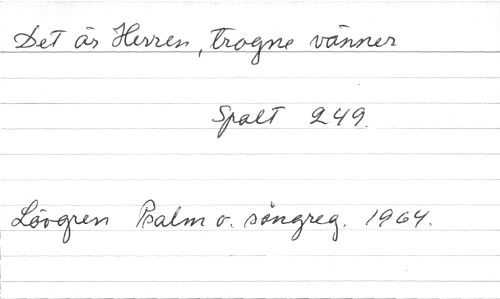 Det är Herren, trogne vänner
Spalt 249.
Lövgren Psalm o. sångreg. 1964.